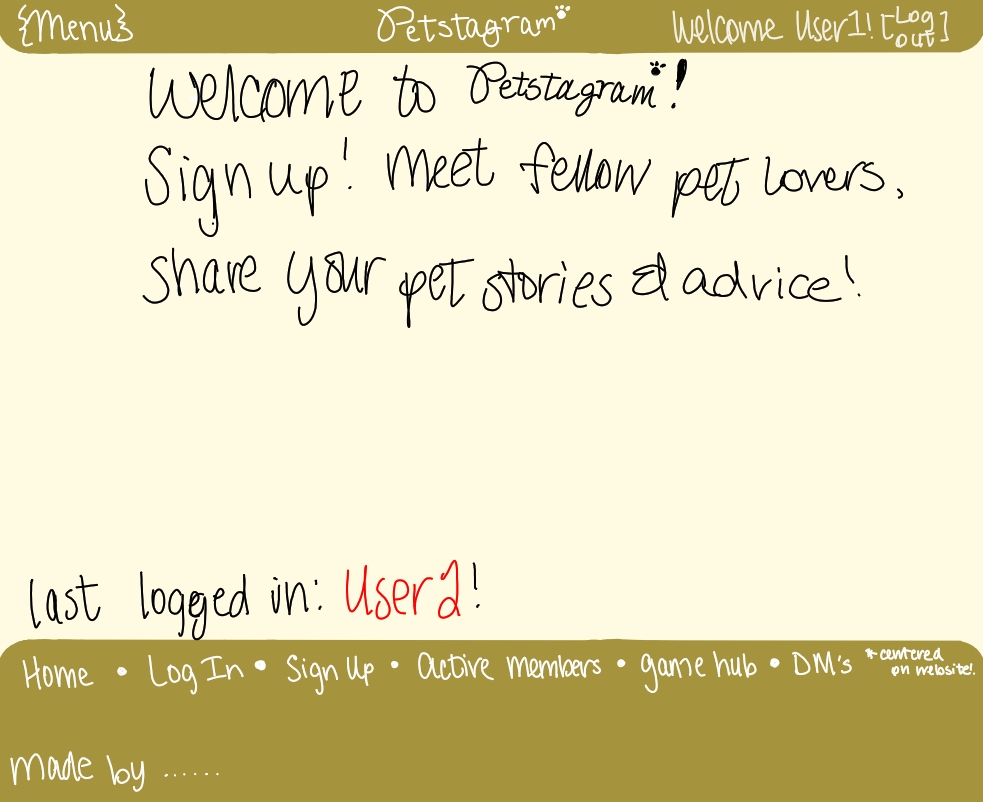 {Menu} Petstagram Welcome User1! [Log out]
Welcome to Petstagram!
Sign up! Meet fellow pet lovers,
share your pet stories & advice!
last logged in: User2!
Home • Log In • Sign Up • Active members • game hub • DM's *centered on website!
Made by ......